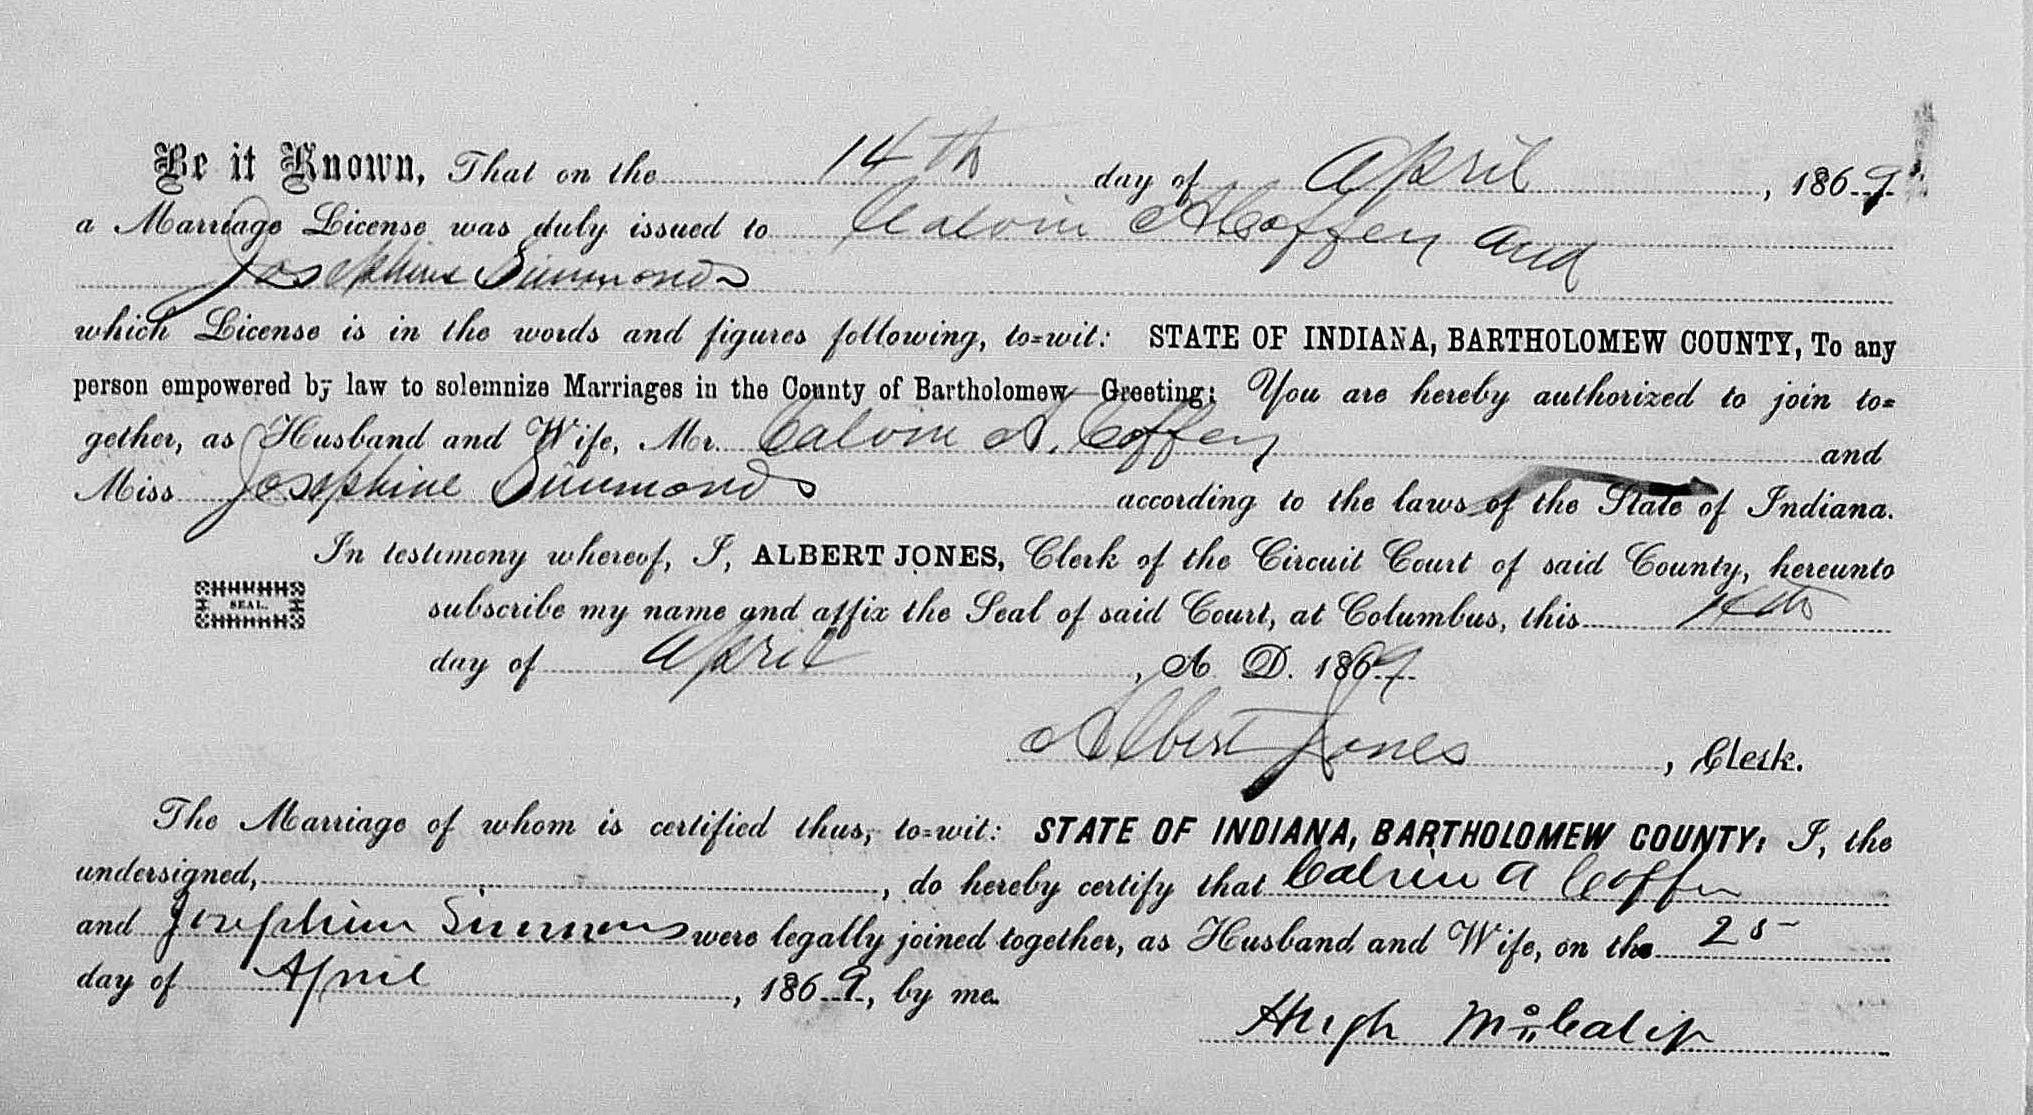 Be it Known, That on the 14th day of April, 1869
a Marriage License was duly issued to Calvin A Coffey and
Josephine Simmonds
which License is in the words and figures following, to=wit: STATE OF INDIANA, BARTHOLOMEW COUNTY, To any
person empowered by law to solemnize Marriages in the County of Bartholomew—Greeting: You are hereby authorized to join to=
gether, as Husband and Wife, Mr. Calvin A. Coffey and
Miss Josephine Simmonds according to the laws of the State of Indiana.
In testimony whereof, I, ALBERT JONES, Clerk of the Circuit Court of said County, hereunto
SEAL. subscribe my name and affix the Seal of said Court, at Columbus, this 14th
day of April, A D. 1869
Albert Jones, Clerk.
The Marriage of whom is certified thus, to=wit: STATE OF INDIANA, BARTHOLOMEW COUNTY: I, the
undersigned, , do hereby certify that Calvin A Coffey
and Josephine Simmons were legally joined together, as Husband and Wife, on the 25
day of April, 1869, by me.
Hugh